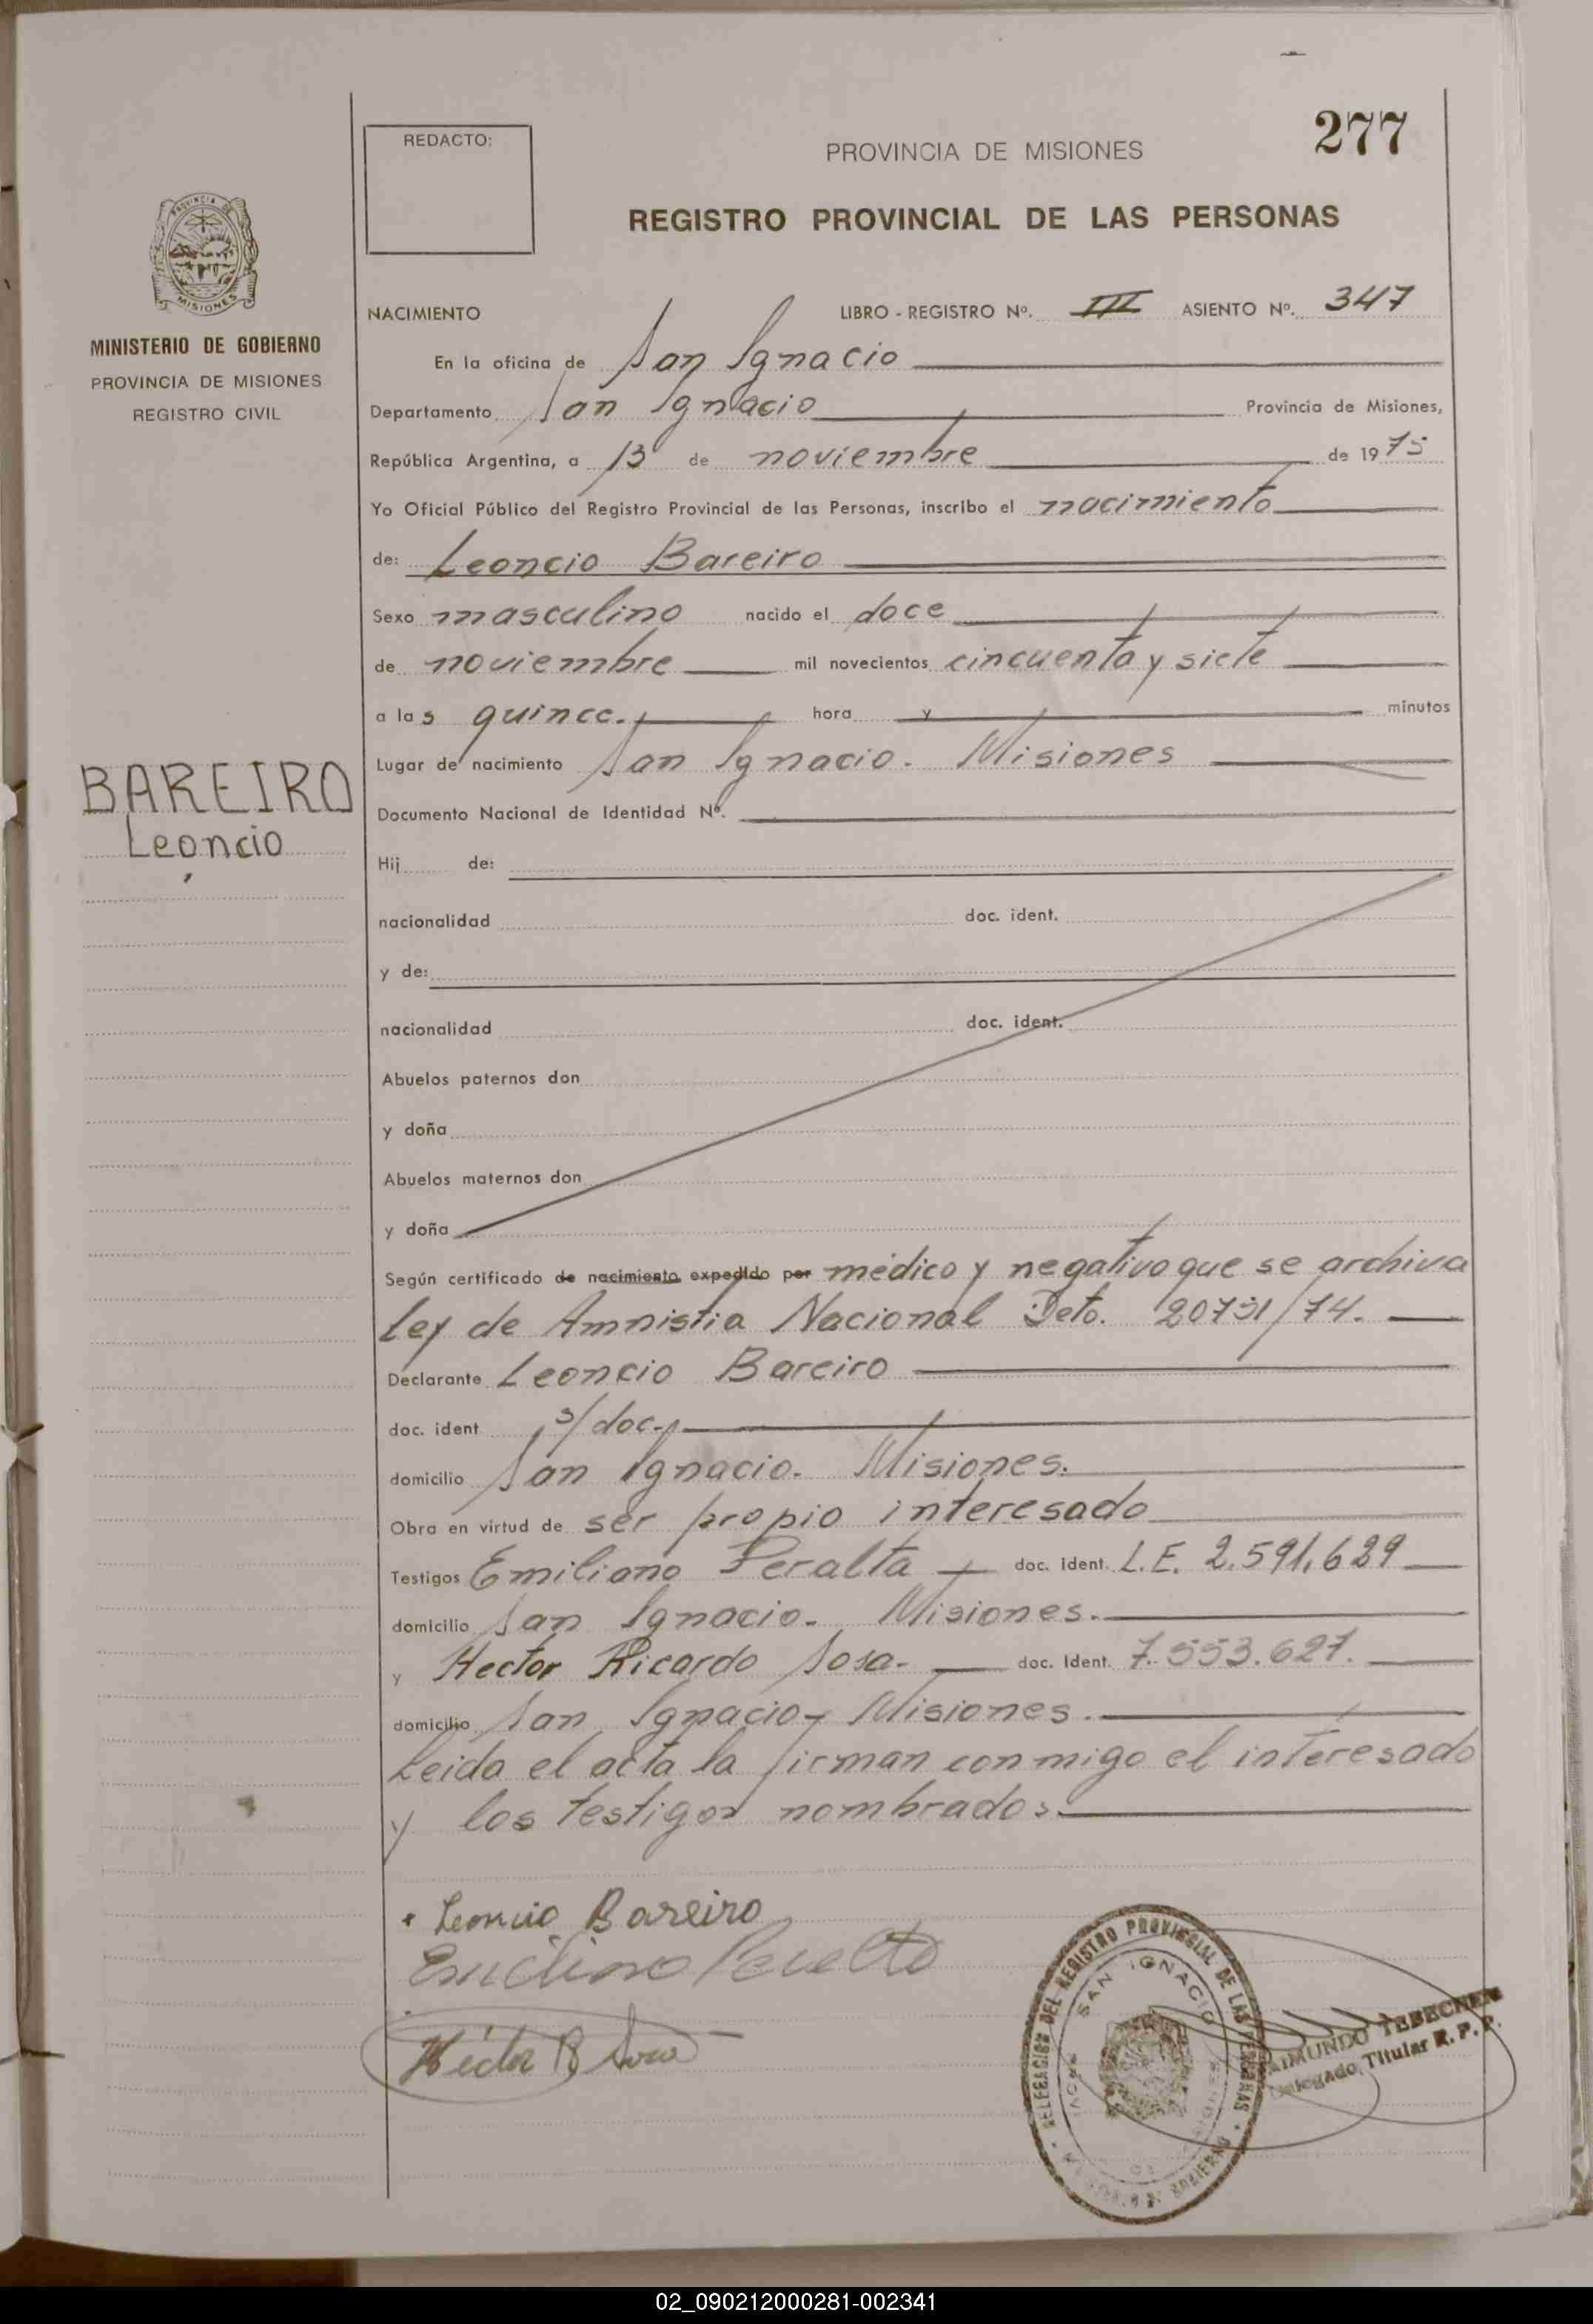 277
REDACTO:
PROVINCIA DE MISIONES
REGISTRO PROVINCIAL DE LAS PERSONAS
PROVINCIA DE
MISIONES
MINISTERIO DE GOBIERNO
PROVINCIA DE MISIONES
REGISTRO CIVIL
NACIMIENTO LIBRO - REGISTRO Nº. III ASIENTO Nº. 347
En la oficina de San Ignacio
Departamento San Ignacio Provincia de Misiones,
República Argentina, a 13 de noviembre de 1975
Yo Oficial Público del Registro Provincial de las Personas, inscribo el nacimiento
de: Leoncio Bareiro
Sexo masculino nacido el doce
de noviembre mil novecientos cincuenta y siete
a las quince. hora y minutos
Lugar de nacimiento San Ignacio. Misiones
BAREIRO
Leoncio
Documento Nacional de Identidad Nº.
Hij de:
nacionalidad doc. ident.
y de:
nacionalidad doc. ident.
Abuelos paternos don
y doña
Abuelos maternos don
y doña
Según certificado de nacimiento expedido por médico y negativo que se archiva
Ley de Amnistia Nacional Deto. 20731/74.
Declarante Leoncio Bareiro
doc. ident s/doc.
domicilio San Ignacio. Misiones.
Obra en virtud de ser propio interesado
Testigos Emiliano Peralta doc. ident. L.E. 2.591.629
domicilio San Ignacio. Misiones.
y Hector Ricardo Sosa. doc. Ident. 7.553.627.
domicilio San Ignacio - Misiones.
Leida el acta la firman conmigo el interesado
y los testigos nombrados.
Leoncio Bareiro
Emiliano Peralta
Héctor R Sosa
DELEGACION DEL REGISTRO PROVINCIAL DE LAS PERSONAS
SAN IGNACIO
RAIMUNDO TEBECHEN
Delegado Titular R. P. P.
02_090212000281-002341